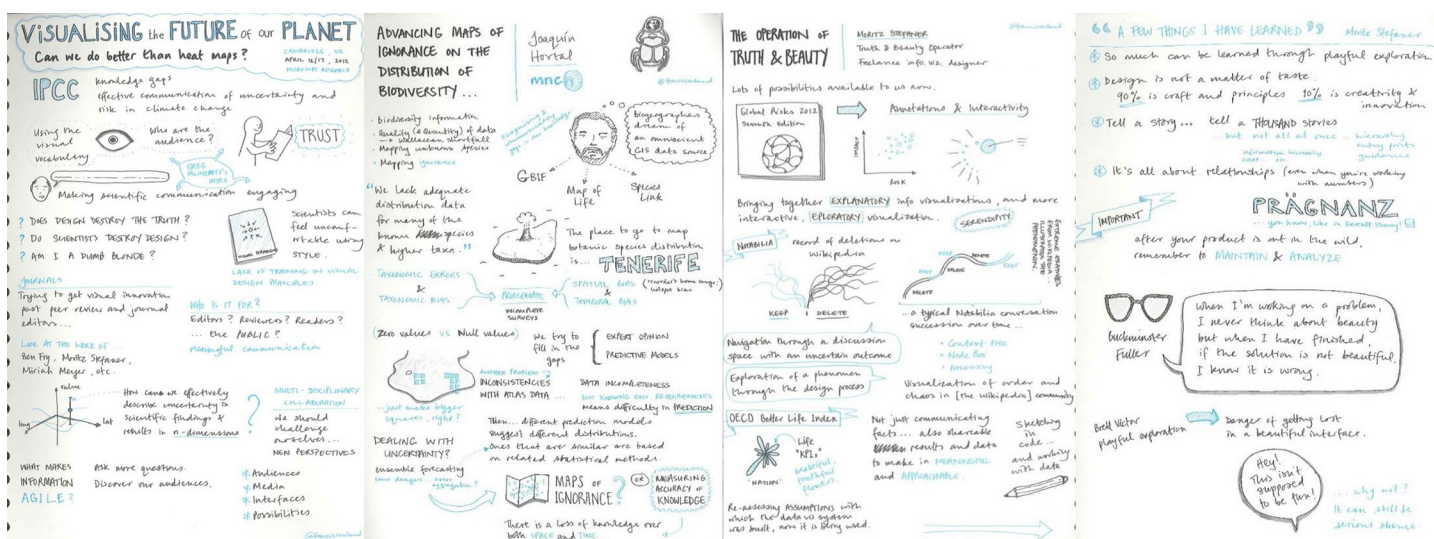 VISUALISING the FUTURE of our PLANET
Can we do better than heat maps?
CAMBRIDGE, UK
APRIL 16/17, 2012
MICROSOFT RESEARCH
IPCC
knowledge gaps
effective communication of uncertainty and
risk in climate change
Using the
visual
vocabulary
Who are the
audience?
TRUST
GREG
MCINERNY'S
INTRO
Making scientific communication engaging
? DOES DESIGN DESTROY THE TRUTH?
? DO SCIENTISTS DESTROY DESIGN?
? AM I A DUMB BLONDE?
VISUAL STRATEGIES
Scientists can
feel uncomf-
ortable using
STYLE.
LACK OF TRAINING IN VISUAL
DESIGN PRINCIPLES
JOURNALS
Trying to get visual innovation
past peer review and journal
editors...
WHO IS IT FOR?
Editors? Reviewers? Readers?
... the PUBLIC?
Meaningful communication
LOOK AT THE WORK OF...
Ben Fry, Moritz Stefaner,
Miriah Meyer, etc.
value
long
lat
How can we effectively
describe uncertainty in
scientific findings &
results in n-dimensions
?
MULTI-DISCIPLINARY
COLLABORATION
We should
challenge
ourselves...
NEW PERSPECTIVES
WHAT MAKES
INFORMATION
AGILE?
Ask more questions.
Discover our audiences.
* Audiences
* Media
* Interfaces
* Possibilities
ADVANCING MAPS OF
IGNORANCE ON THE
DISTRIBUTION OF
BIODIVERSITY...
Joaquín
Hortal
mnc
- Biodiversity information
- Quality (& Quantity) of data
→ Wallacean shortfall
- Mapping unknown species
- Mapping ignorance
Biogeographers
dream of
an omniscient
GIS data source
GBIF
Map of
Life
Species
Link
"We lack adequate
distribution data
for many of the
known species
& higher taxa."
The place to go to map
botanic species distribution
is... TENERIFE
TAXONOMIC ERRORS
&
TAXONOMIC BIAS
PROBLEMATIC
INCOMPLETE
SURVEYS
SPATIAL BIAS
&
TEMPORAL BIAS
(Zero values VS Null values)
We try to
fill in the
gaps
EXPERT OPINION
PREDICTIVE MODELS
...just make bigger
squares, right?
ANOTHER PROBLEM
INCONSISTENCIES
WITH ATLAS DATA...
DATA INCOMPLETENESS
means difficulty in PREDICTION
Then... different prediction models
suggest different distributions.
Ones that are similar are based
on related statistical methods.
DEALING WITH
UNCERTAINTY?
ensemble forecasting
MAPS OF
IGNORANCE
?
OR
MEASURING
ACCURACY OF
KNOWLEDGE
There is a loss of knowledge over
both SPACE and TIME
THE OPERATION OF
TRUTH & BEAUTY
MORITZ STEFANER
Truth & Beauty Operator
Freelance info. viz. designer
Lots of possibilities available to us now.
Global Risks 2012
Seventh Edition
Annotations & Interactivity
IMPACT
RISK
Bringing together EXPLANATORY info visualizations, and more
interactive, EPLORATORY visualization.
SERENDIPITY
NOTABILIA
record of deletions on
Wikipedia
KEEP
DELETE
KEEP
DELETE
KEEP
DELETE
DELETE
...a typical Notabilia conversation
succession over time...
Navigation through a discussion
space with an uncertain outcome
• Context Free
• Node Box
• Processing
Exploration of a phenomen
through the design process
Visualization of order and
chaos in [the wikipedia] community
OECD Better Life Index
Life
"KPIs"
beautiful,
truthful
flowers.
"NATION"
Not just communicating
facts... also shareable
results and data
to make in MEANINGFUL
and APPROACHABLE.
Sketching
in
code...
and working
with data
Re-assessing ASSUMPTIONS with
which the data vis system
was built, now it is being used.
"A FEW THINGS I HAVE LEARNED"
Moritz Stefaner
So much can be learned through playful exploration
Design is not a matter of taste.
90% is craft and principles 10% is creativity &
innovation
Tell a story... tell a THOUSAND stories
...but not all at once...
hierarchy
entry points
guidance
It's all about relationships (even when you're working
with numbers)
IMPORTANT
PRÄGNANZ
...you know, like in Gestalt theory!
after your product is out in the wild,
remember to MAINTAIN & ANALYZE
Buckminster
Fuller
When I'm working on a problem,
I never think about beauty
but when I have finished,
if the solution is not beautiful,
I know it is wrong.
Brett Victor
playful exploration
Danger of getting lost
in a beautiful interface.
Hey!
This isn't
supposed
to be fun!
...why not?
It can still be
serious science.